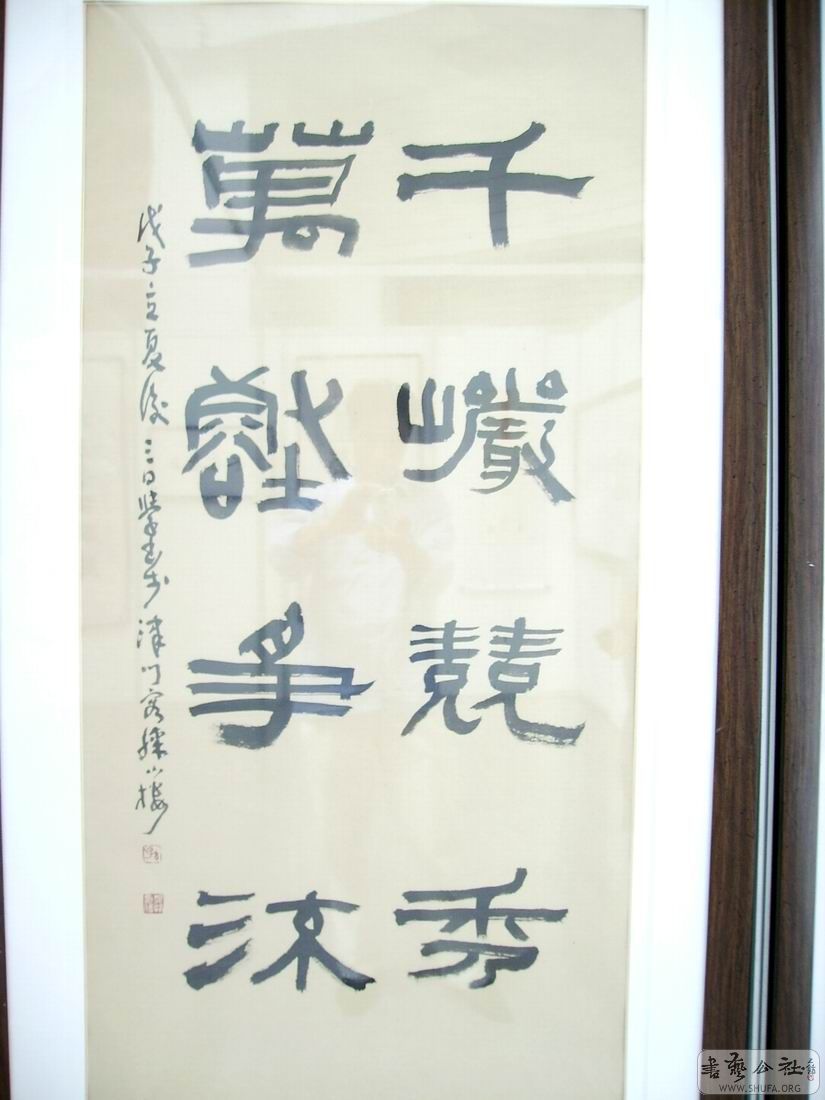 千巖競秀
萬壑爭流
戊子立夏後三日書於津門容膝小樓
書藝公社
WWW.SHUFA.ORG